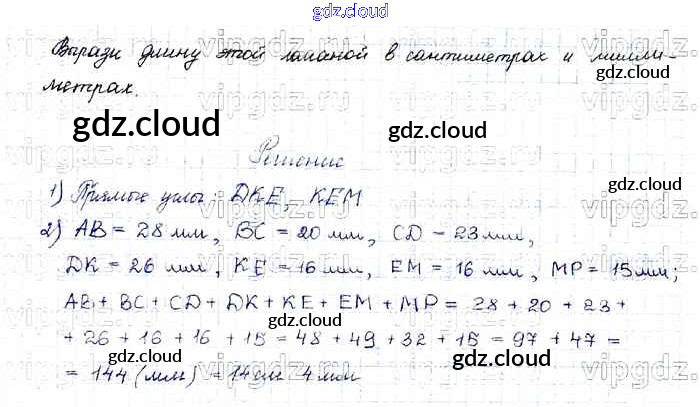 gdz.cloud
Вырази длину этой ломаной в сантиметрах и милли-
gdz.cloud
метрах.
gdz.cloud
gdz.cloud
Решение
gdz.cloud
1) Прямые углы: DKE, KEM
gdz.cloud
2) AB = 28 мм, BC = 20 мм, CD - 23 мм,
DK = 26 мм, KE = 16 мм, EM = 16 мм, MP = 15 мм;
AB + BC + CD + DK + KE + EM + MP = 28 + 20 + 23 +
gdz.cloud
+ 26 + 16 + 16 + 15 = 48 + 49 + 32 + 15 = 97 + 47 =
gdz.cloud
gdz.cloud
= 144 (мм) = 14 см 4 мм